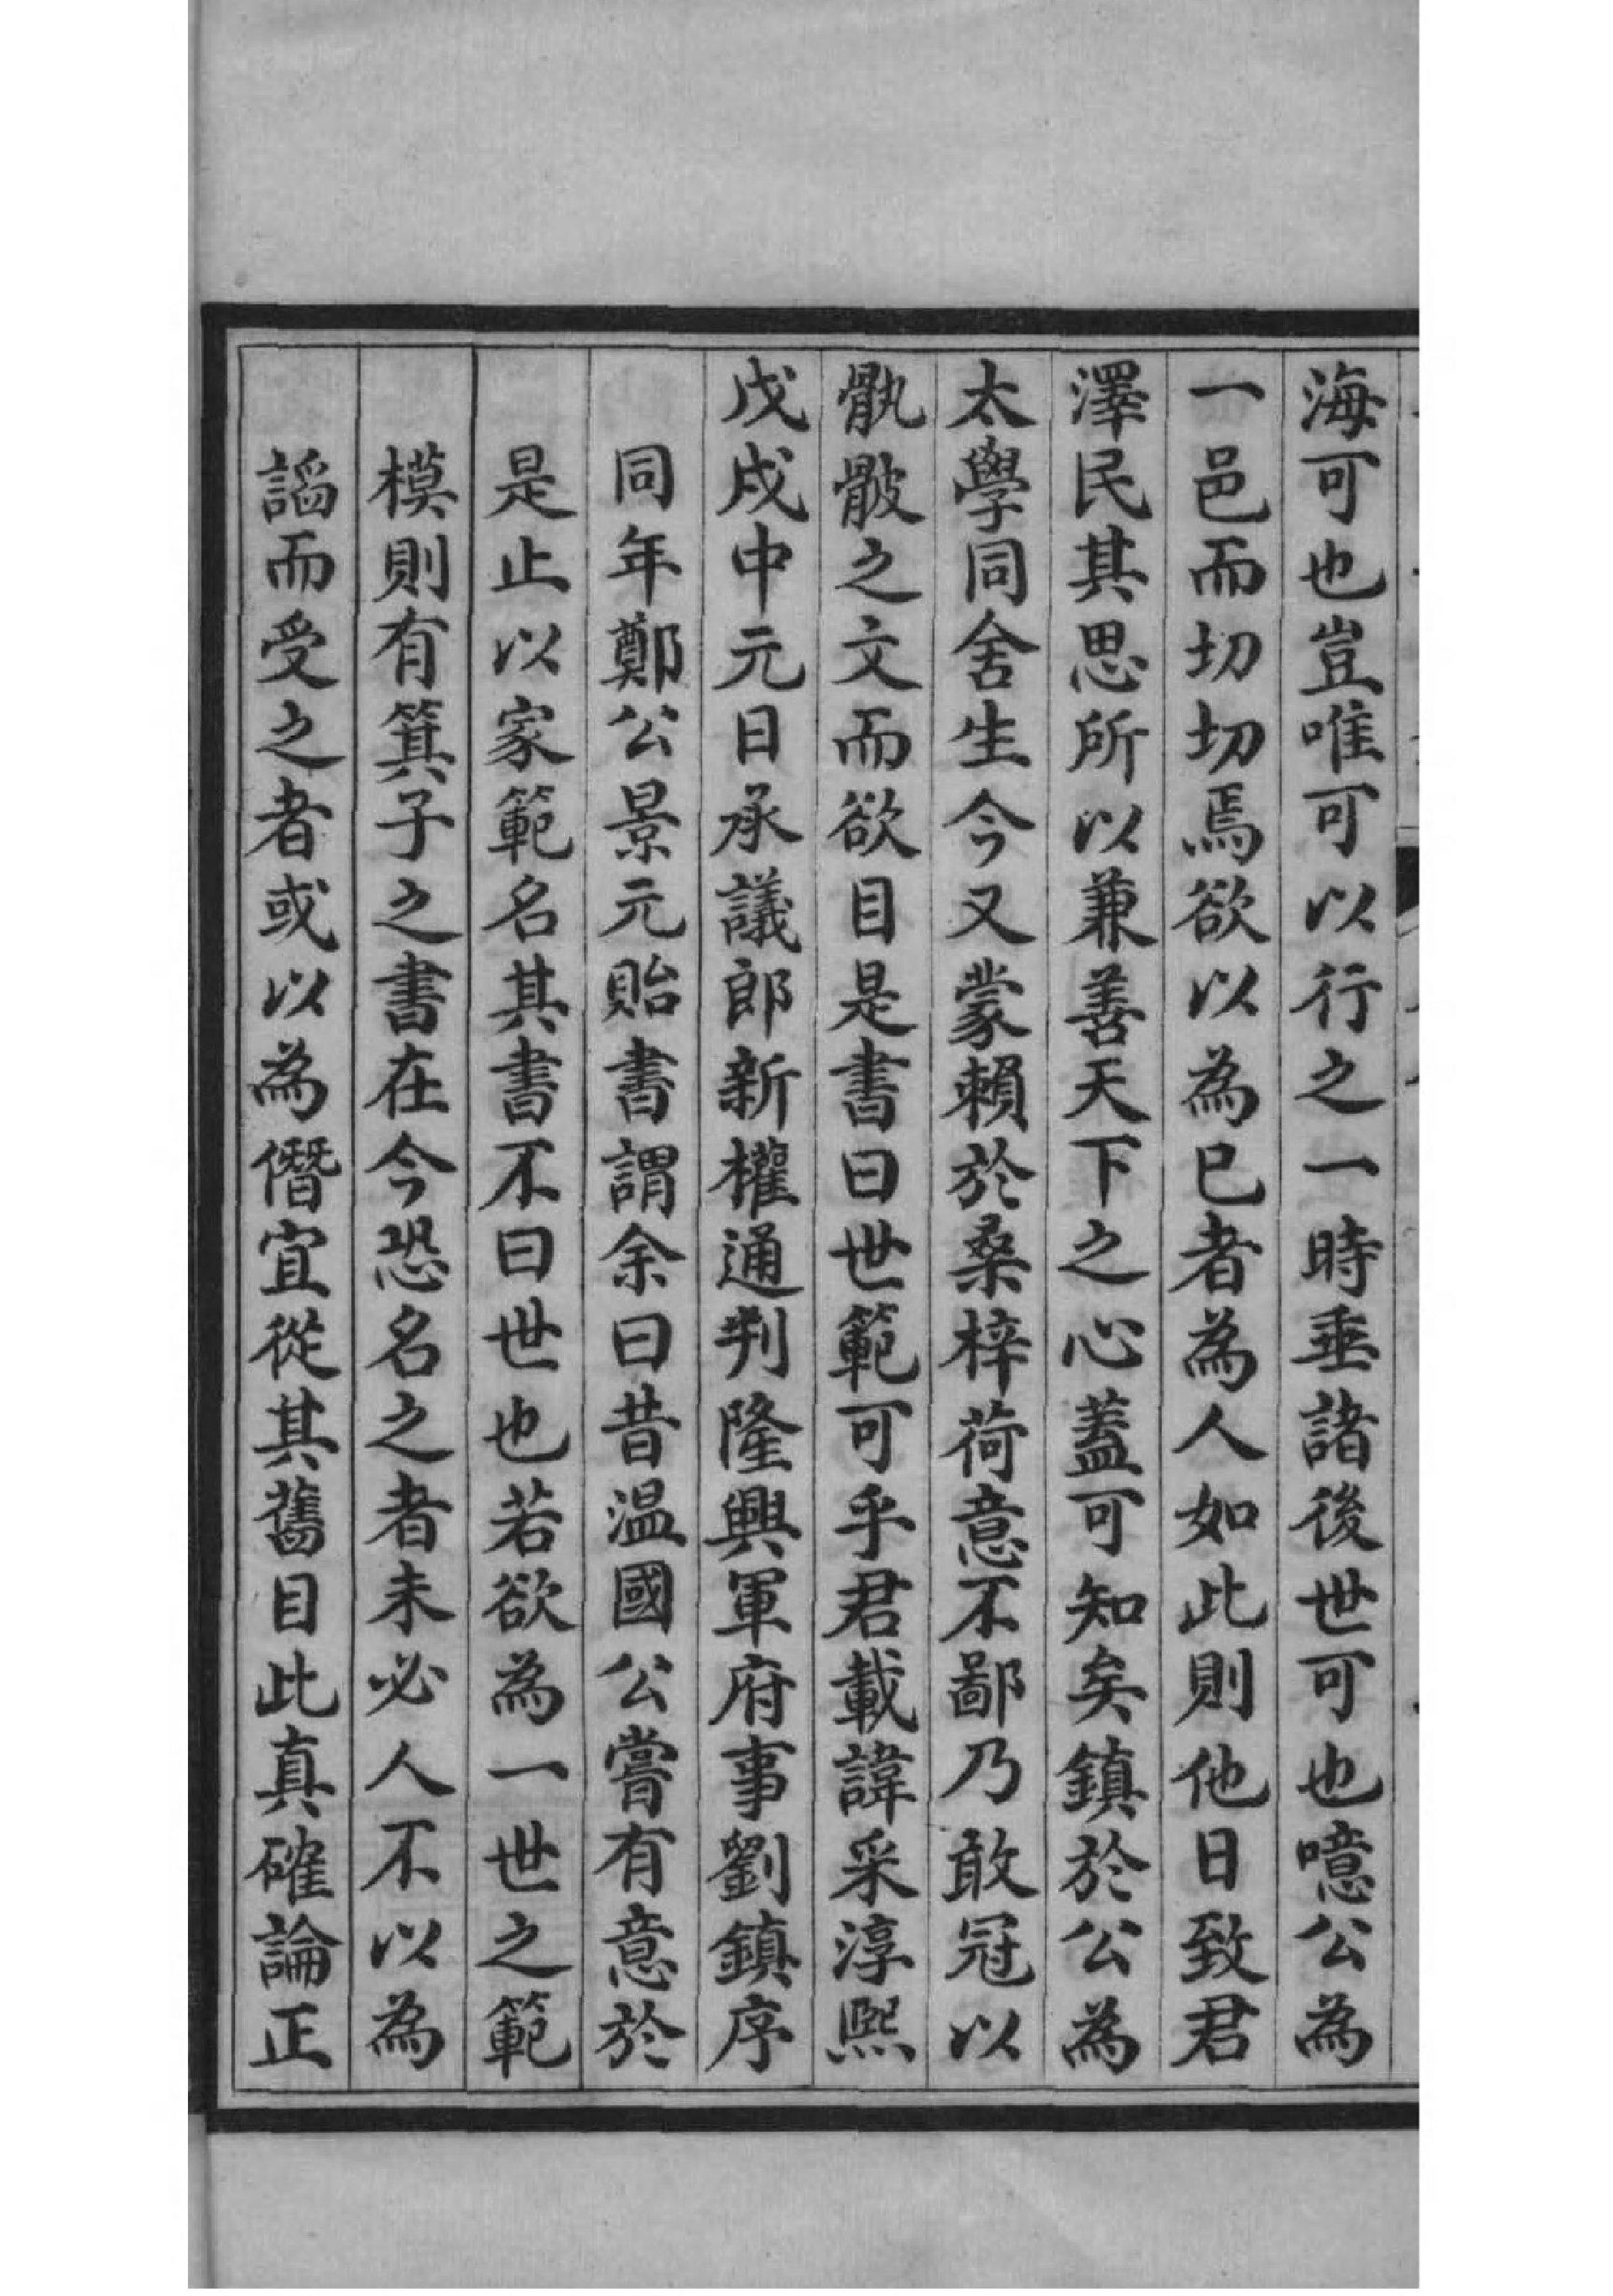 海可也豈唯可以行之一時垂諸後世可也噫公為
一邑而切切焉欲以為已者為人如此則他日致君
澤民其思所以兼善天下之心蓋可知矣鎮於公為
太學同舍生今又蒙賴於桑梓荷意不鄙乃敢冠以
骩骳之文而欲目是書曰世範可乎君載諱采淳熙
戊戌中元日承議郎新權通判隆興軍府事劉鎮序
同年鄭公景元貽書謂余曰昔温國公嘗有意於
是止以家範名其書不曰世也若欲為一世之範
模則有箕子之書在今恐名之者未必人不以為
謟而受之者或以為僭宜從其舊目此真確論正